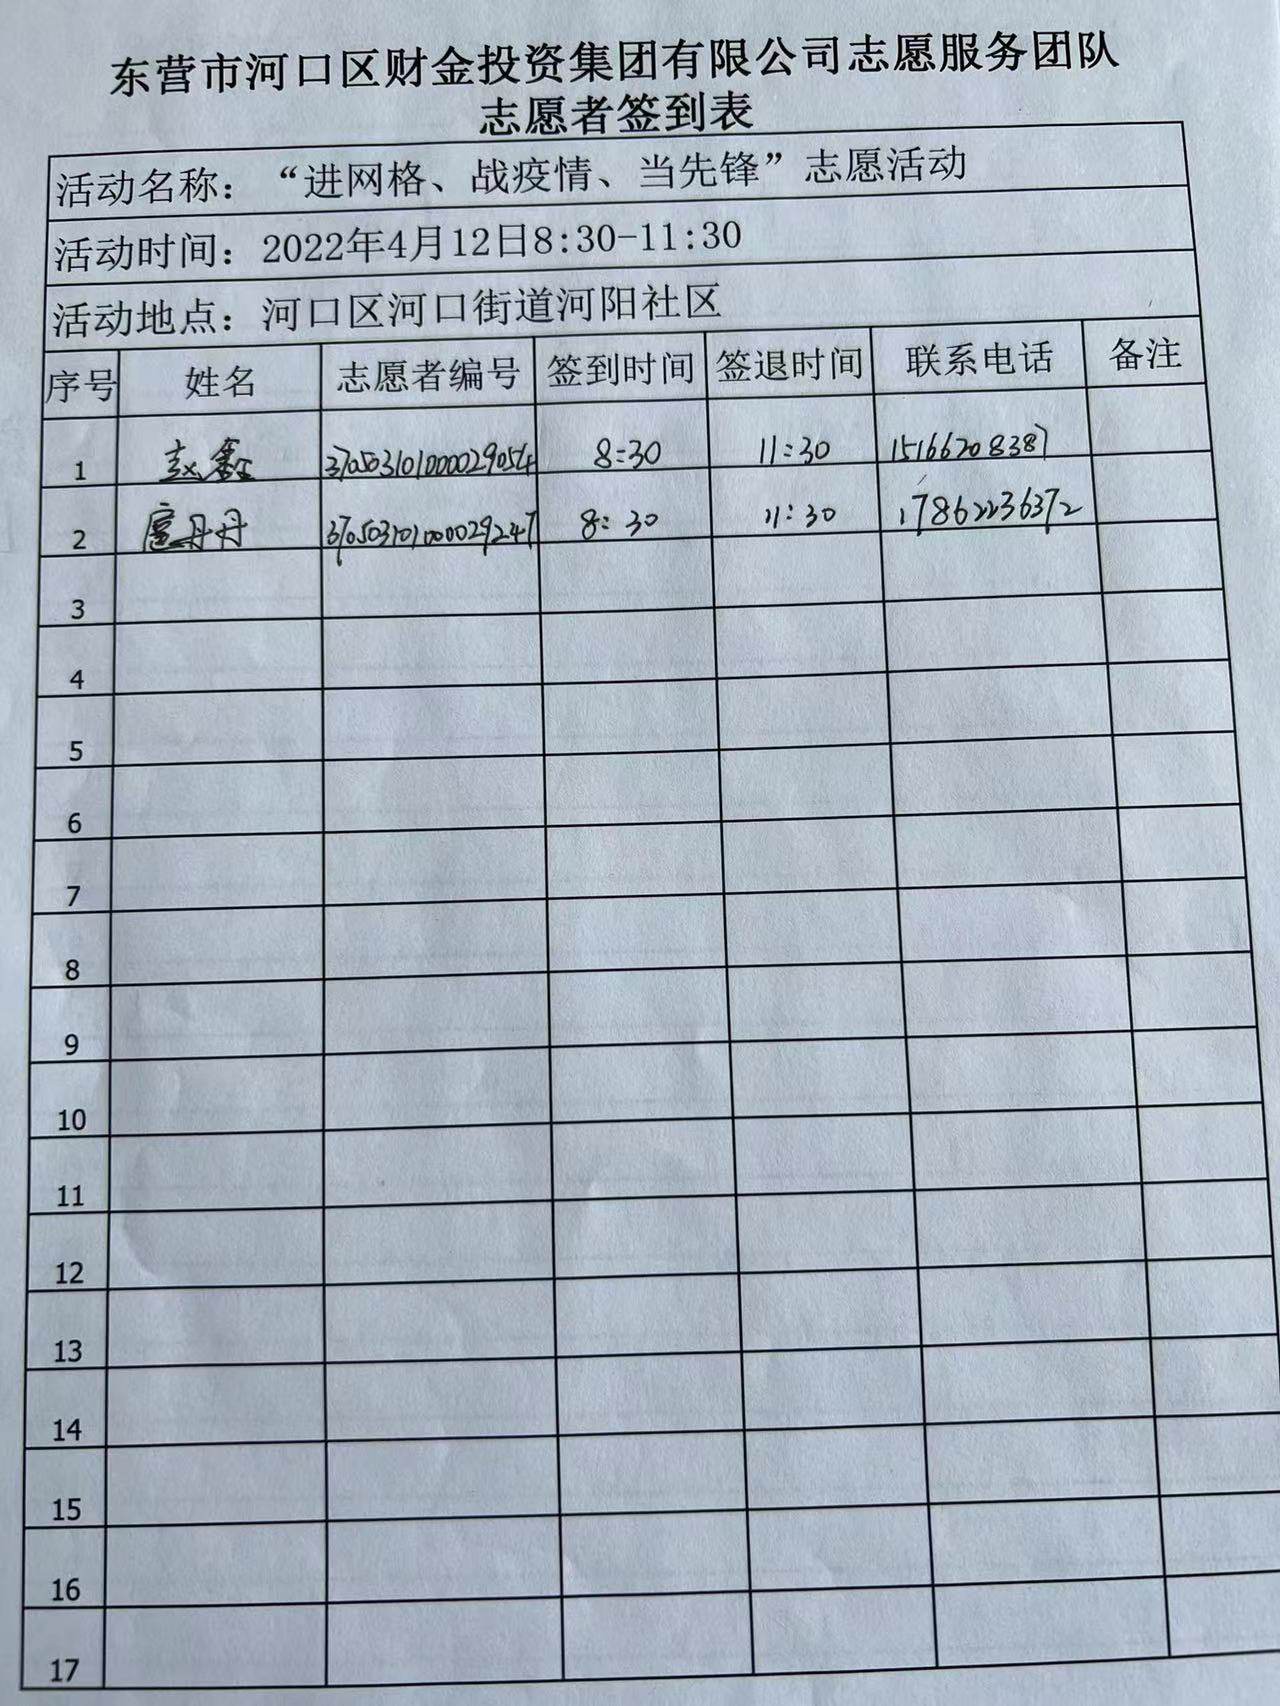 东营市河口区财金投资集团有限公司志愿服务团队
志愿者签到表
活动名称：“进网格、战疫情、当先锋”志愿活动
活动时间：2022年4月12日8:30-11:30
活动地点：河口区河口街道河阳社区
序号 姓名 志愿者编号 签到时间 签退时间 联系电话 备注
1 赵鑫 370503101000029054 8:30 11:30 15166208387
2 扈丹丹 370503101000029247 8:30 11:30 17862236372
3
4
5
6
7
8
9
10
11
12
13
14
15
16
17